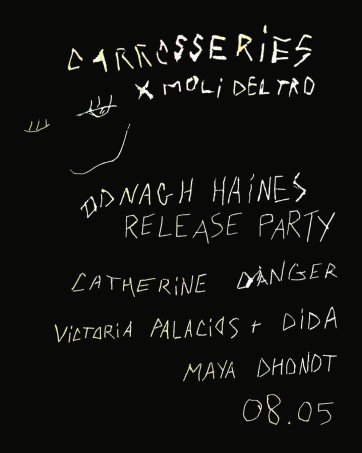 CARROSSERIES
X MOLi DEL TRO
DONAGH HAiNES
RELEASE PARTY
CATHERiNE DANGER
ViCTORIA PALACiOS + DiDA
MAYA DHONDT
08.05